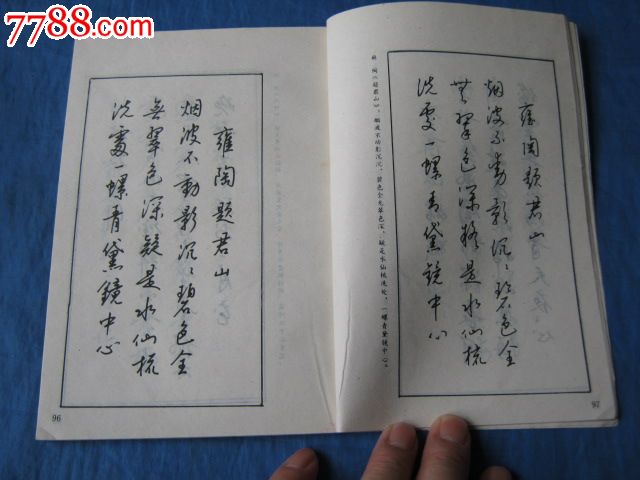 7788.com
雍陶题君山
烟波不動影沉〻碧色全
無翠色深疑是水仙梳
洗處一螺青黛鏡中心
96
雍陶题君山
烟波不動影沉〻碧色全
無翠色深疑是水仙梳
洗處一螺青黛鏡中心
雍陶《题君山》：烟波不动影沉沉，碧色全无翠色深。疑是水仙梳洗处，一螺青黛镜中心。
97